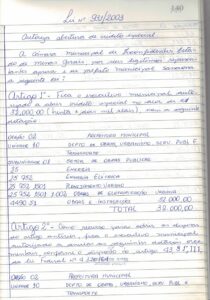 340
Lei nº 921/2003
Autoriza abertura de crédito especial
A Câmara municipal de
de Minas Gerais, por seus legítimos representantes
aprova e eu prefeito municipal sanciono
a seguinte lei:
Artigo 1º - Fica o executivo municipal auto-
rizado a abrir crédito especial no valor de R$
32,000.00 (trinta e dois mil reais), com a seguinte
dotação
ORGÃO 02 PREFEITURA MUNICIPAL
UNIDADE 10 DEPTO DE OBRAS, URBANISMO, SERV. PUBL. E
TRANSPORTE
SETOR DE OBRAS PUBLICAS
25 ENERGIA
25 752 ENERGIA ELETRICA
25 752 1503 URBANO
ELETRIFICAÇÃO URBANA
4490 51 OBRAS E INSTALAÇÃO 32.000,00
TOTAL 32.000,00
Artigo 2º - Como recurso para cobrir as despesas
do artigo anterior, fica o executivo municipal
autorizado a anular as seguintes dotações orça-
mentárias, conforme o disposto no artigo
da Lei Federal nº 4.320/64
ORGÃO 02 PREFEITURA MUNICIPAL
UNIDADE 10 DEPTO DE OBRAS, URBANISMO, SERV. PUBL. E
TRANSPORTE